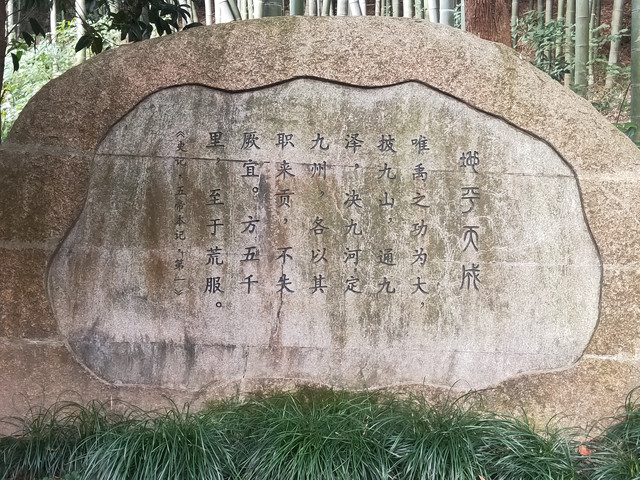 地平天成
唯禹之功为大，
披九山，通九
泽，决九河，定
九州，各以其
职来贡，不失
厥宜。方五千
里，至于荒服。
《史记·五帝本记·第一》